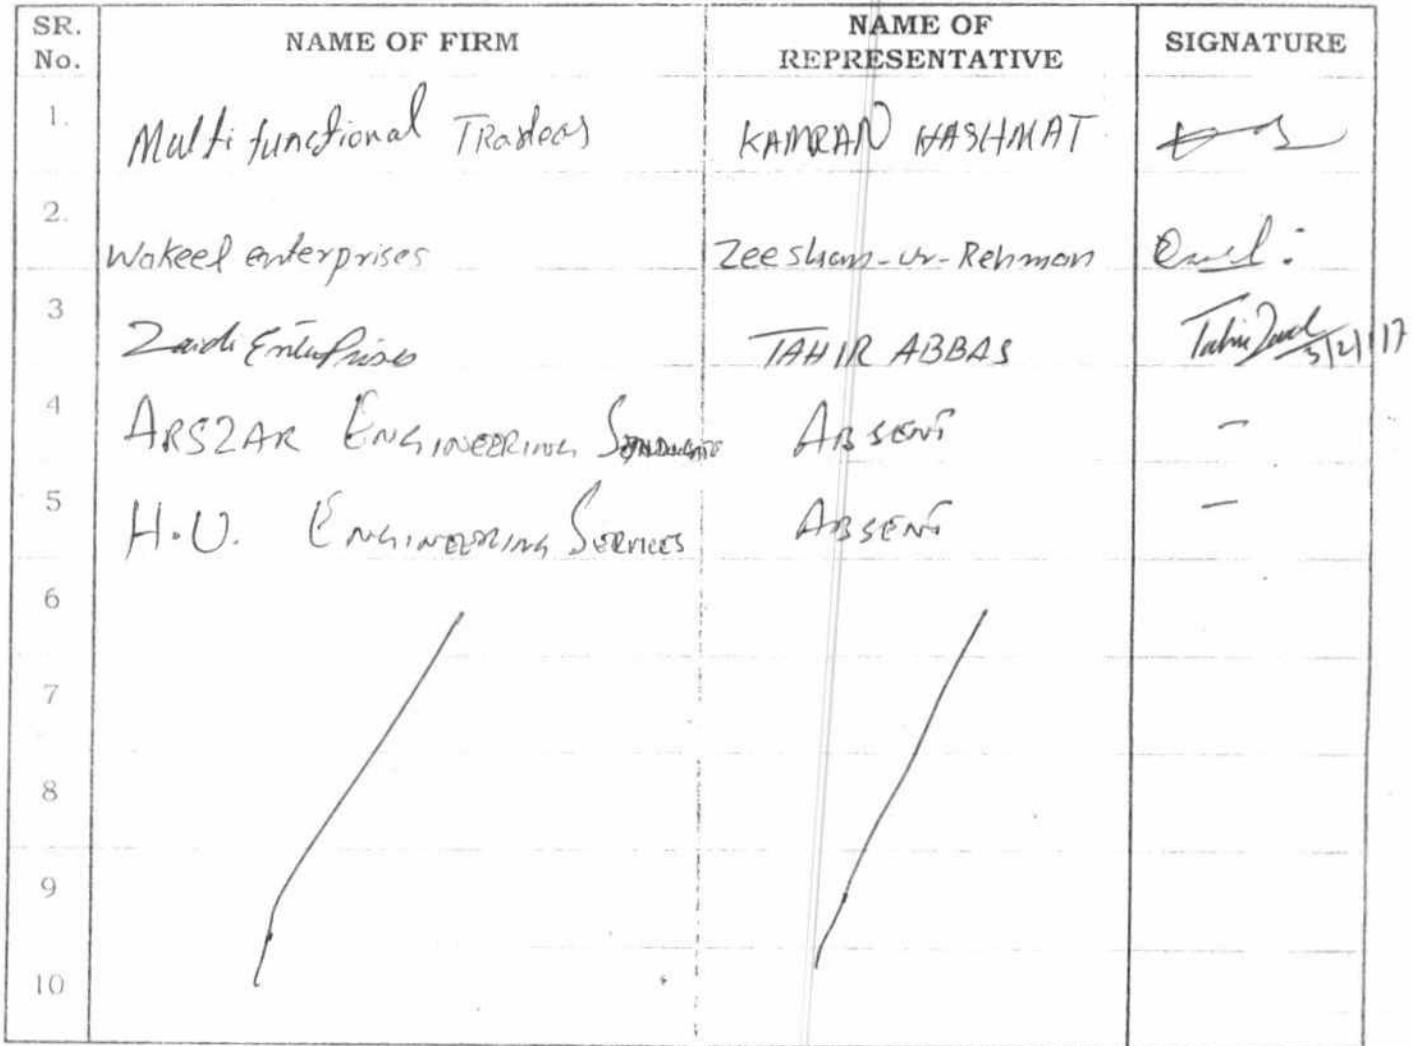 SR. No. NAME OF FIRM NAME OF REPRESENTATIVE SIGNATURE
1. Multi functional Traders KAMRAN HASHMAT
2. Wakeel enterprises Zeeshan-ur-Rehman
3 Zaidi Enterprises TAHIR ABBAS
4 ARSZAR ENGINEERING SYNDICATE ABSENT –
5 H.U. ENGINEERING SERVICES ABSENT –
6
7
8
9
10